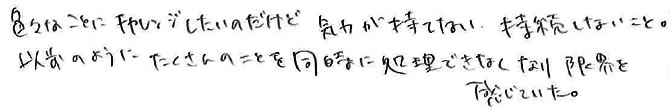 色々なことにチャレンジしたいのだけど 気力が持てない、持続しないこと。
以前のようにたくさんのことを同時に処理できなくなり 限界を
感じていた。